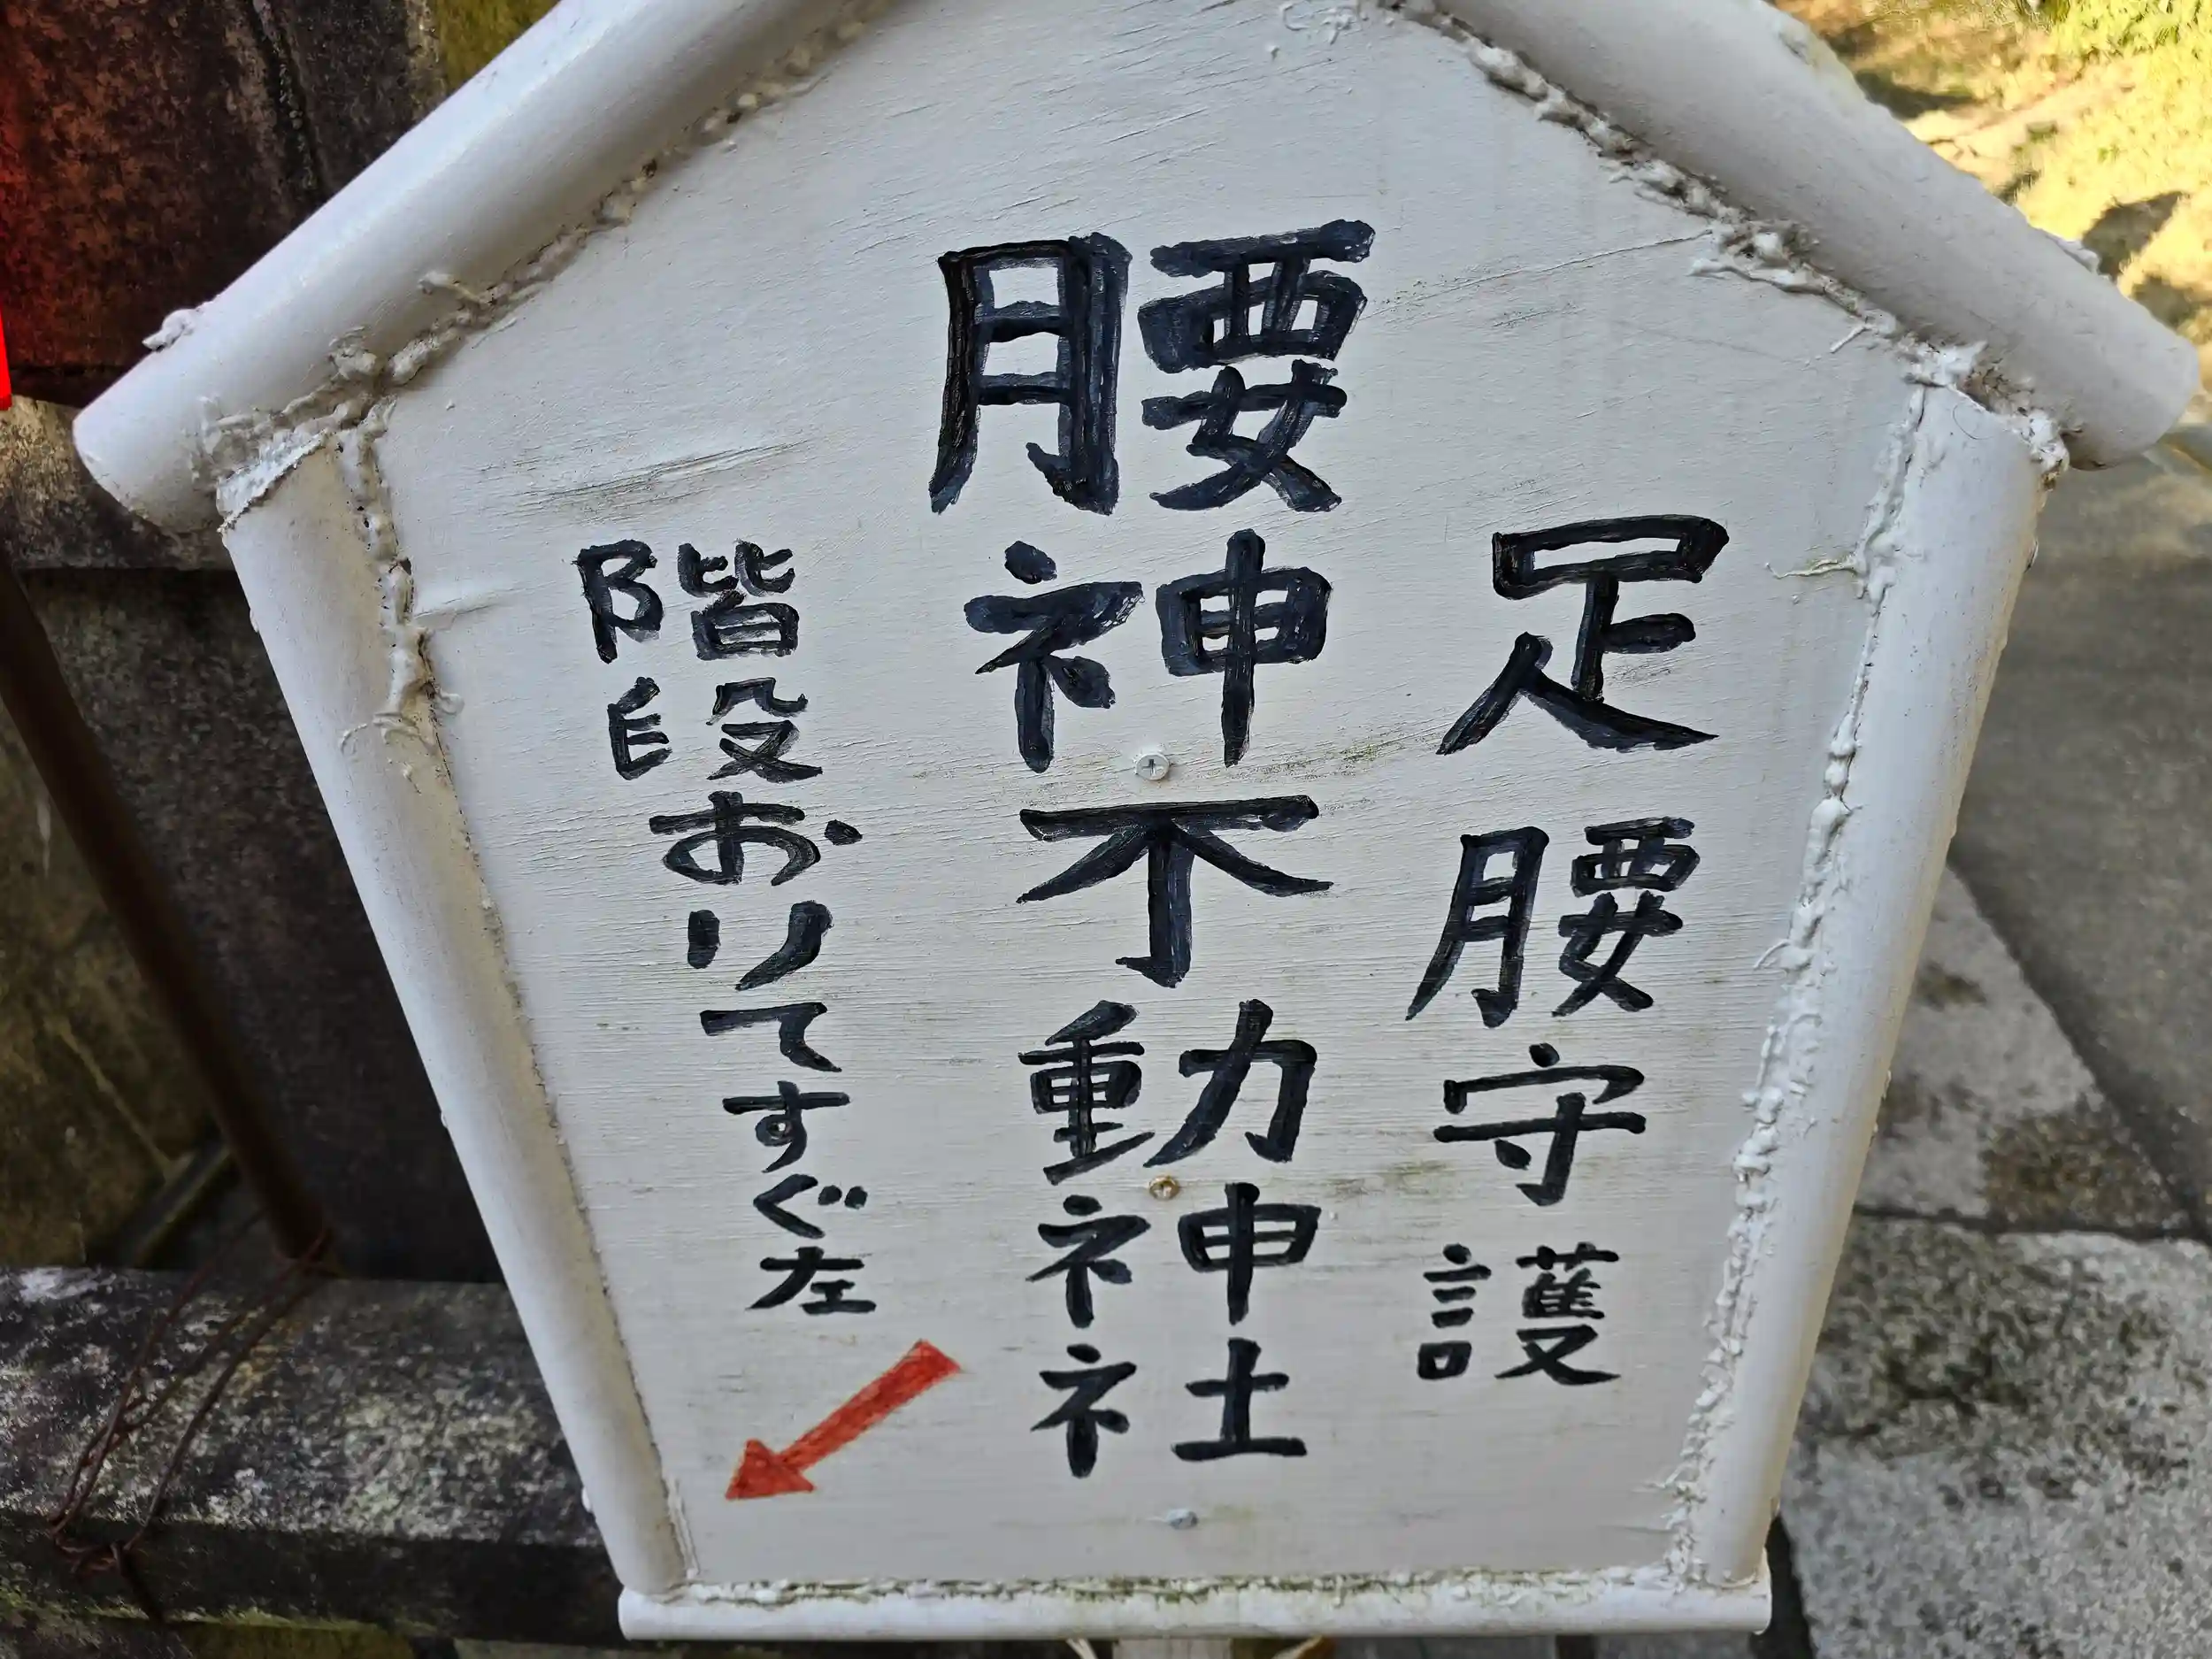 足腰守護
腰神不動神社
階段おりてすぐ左